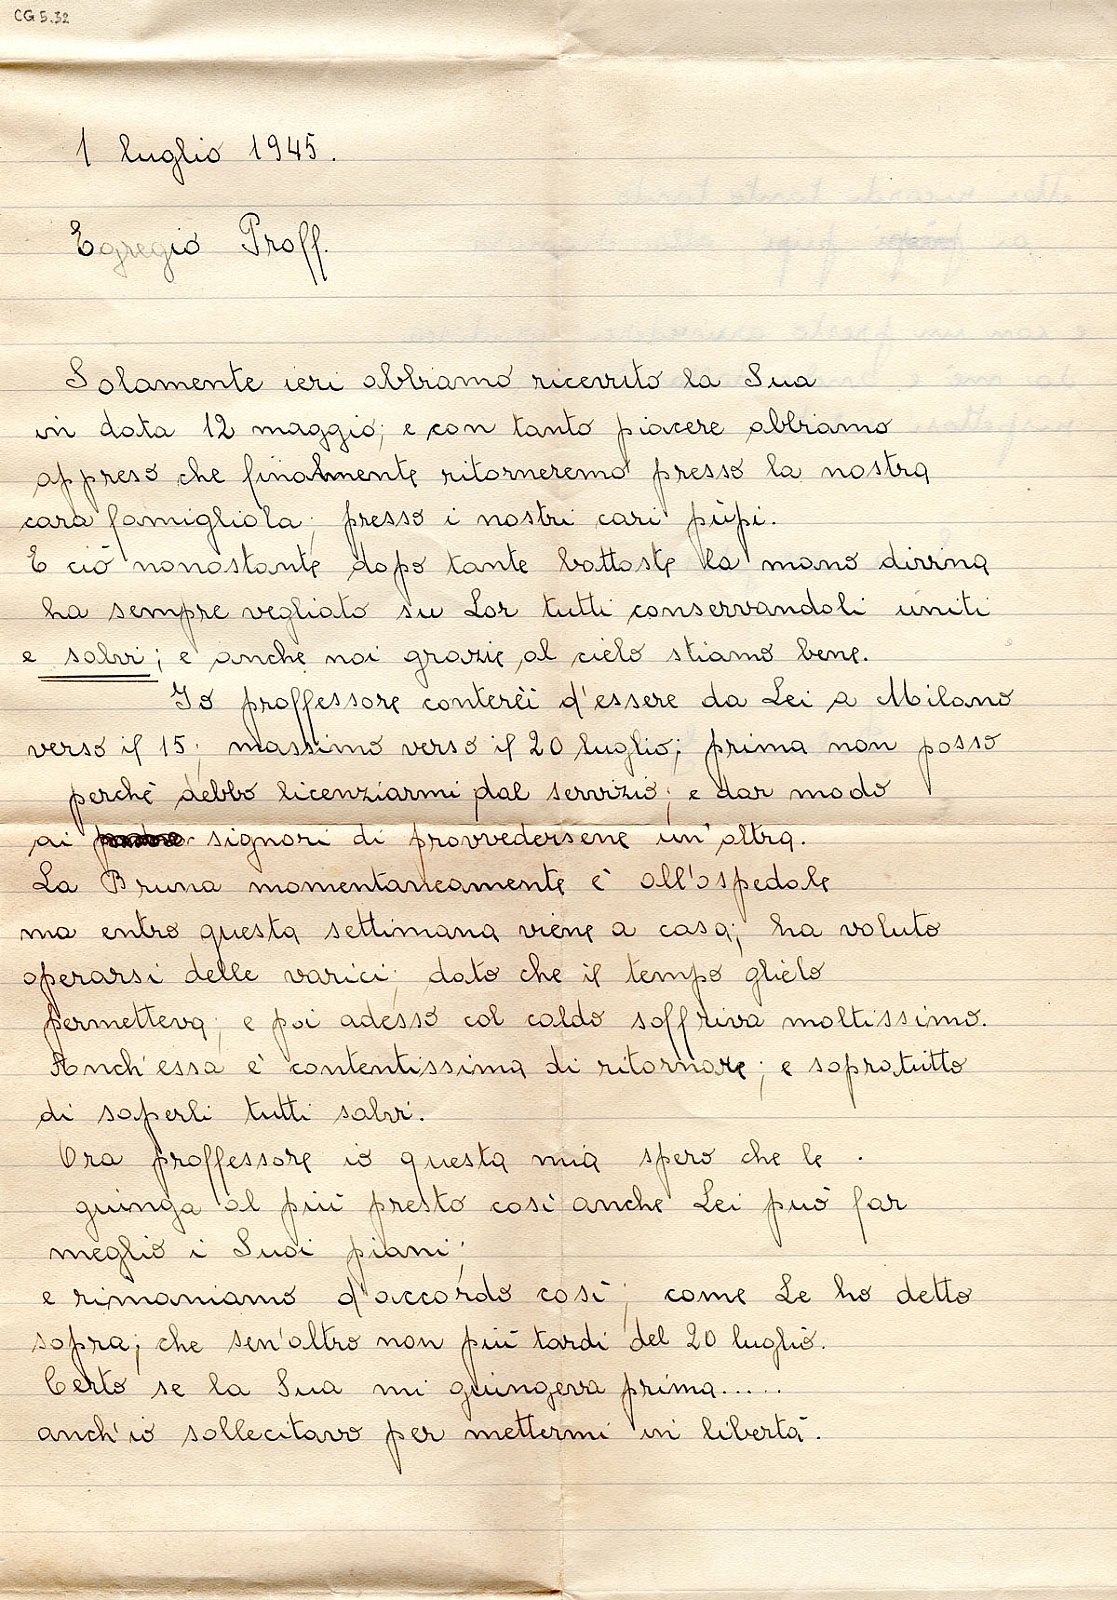 CG 5.32
1 luglio 1945.
Egregio Proff.
Solamente ieri abbiamo ricevuto la Sua
in data 12 maggio; e con tanto piacere abbiamo
appreso che finalmente ritorneremo presso la nostra
cara famigliola; presso i nostri cari pùpi.
E ciò nonostante dopo tante battoste la mano divina
ha sempre vegliato su Lor tutti conservandoli uniti
e salvi; e anche noi grazie al cielo stiamo bene.
Io proffessore conterèi d'essere da Lei a Milano
verso il 15; massimo verso il 20 luglio; prima non posso
perchè debbo licenziarmi dal servizio; e dar modo
ai signori di provvedersene un'altra.
La Bruna momentaneamente è all'ospedale
ma entro questa settimana viene a casa; ha voluto
operarsi delle varici; dato che il tempo glielo
permetteva; e poi adesso col caldo soffriva moltissimo.
Anch'essa è contentissima di ritornare; e sopratutto
di saperli tutti salvi.
Ora proffessore io questa mia spero che le
guinga al più presto così anche Lei può far
meglio i Suoi piani;
e rimaniamo d'accordo così; come Le ho detto
sopra; che sen'altro non più tardi del 20 luglio.
Certo se la Sua mi guingeva prima.....
anch'io sollecitavo per mettermi in libertà.